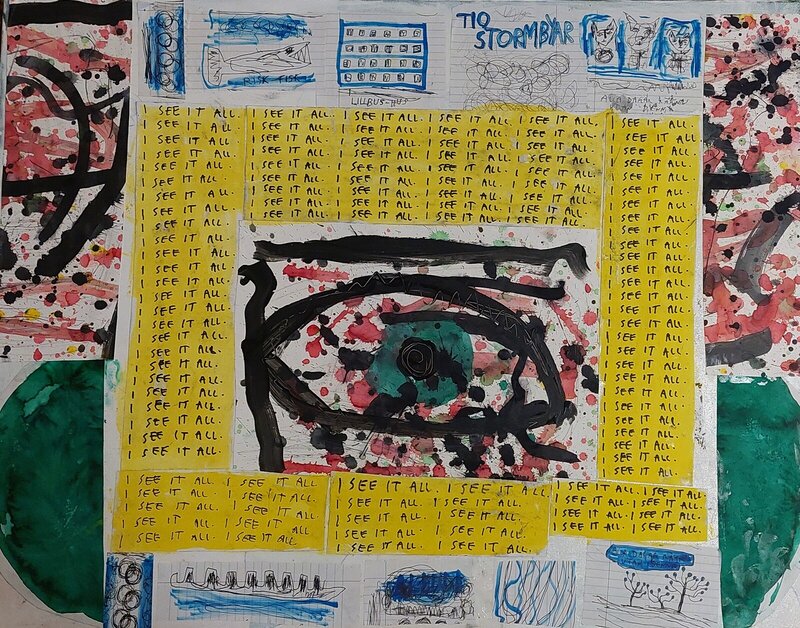 TIO
STORMBYAR
RISK FISK
I SEE IT ALL. I SEE IT ALL. I SEE IT ALL. I SEE IT ALL. I SEE IT ALL. I SEE IT ALL.
I SEE IT ALL. I SEE IT ALL. I SEE IT ALL. I SEE IT ALL. I SEE IT ALL. I SEE IT ALL.
I SEE IT ALL. I SEE IT ALL. I SEE IT ALL. I SEE IT ALL. I SEE IT ALL. I SEE IT ALL.
I SEE IT ALL. I SEE IT ALL. I SEE IT ALL. I SEE IT ALL. I SEE IT ALL. I SEE IT ALL.
I SEE IT ALL. I SEE IT ALL. I SEE IT ALL. I SEE IT ALL. I SEE IT ALL. I SEE IT ALL.
I SEE IT ALL. I SEE IT ALL. I SEE IT ALL. I SEE IT ALL. I SEE IT ALL. I SEE IT ALL.
I SEE IT ALL. I SEE IT ALL. I SEE IT ALL. I SEE IT ALL. I SEE IT ALL. I SEE IT ALL.
I SEE IT ALL. I SEE IT ALL. I SEE IT ALL. I SEE IT ALL. I SEE IT ALL. I SEE IT ALL.
I SEE IT ALL. I SEE IT ALL. I SEE IT ALL. I SEE IT ALL. I SEE IT ALL. I SEE IT ALL.
I SEE IT ALL. I SEE IT ALL.
I SEE IT ALL. I SEE IT ALL.
I SEE IT ALL. I SEE IT ALL.
I SEE IT ALL. I SEE IT ALL.
I SEE IT ALL. I SEE IT ALL.
I SEE IT ALL. I SEE IT ALL.
I SEE IT ALL. I SEE IT ALL.
I SEE IT ALL. I SEE IT ALL.
I SEE IT ALL. I SEE IT ALL.
I SEE IT ALL. I SEE IT ALL.
I SEE IT ALL. I SEE IT ALL.
I SEE IT ALL. I SEE IT ALL.
I SEE IT ALL. I SEE IT ALL.
I SEE IT ALL. I SEE IT ALL.
I SEE IT ALL. I SEE IT ALL.
I SEE IT ALL. I SEE IT ALL.
I SEE IT ALL. I SEE IT ALL. I SEE IT ALL. I SEE IT ALL. I SEE IT ALL. I SEE IT ALL.
I SEE IT ALL. I SEE IT ALL. I SEE IT ALL. I SEE IT ALL. I SEE IT ALL. I SEE IT ALL.
I SEE IT ALL. I SEE IT ALL. I SEE IT ALL. I SEE IT ALL. I SEE IT ALL. I SEE IT ALL.
I SEE IT ALL. I SEE IT ALL. I SEE IT ALL. I SEE IT ALL. I SEE IT ALL. I SEE IT ALL.
I SEE IT ALL. I SEE IT ALL. I SEE IT ALL. I SEE IT ALL.